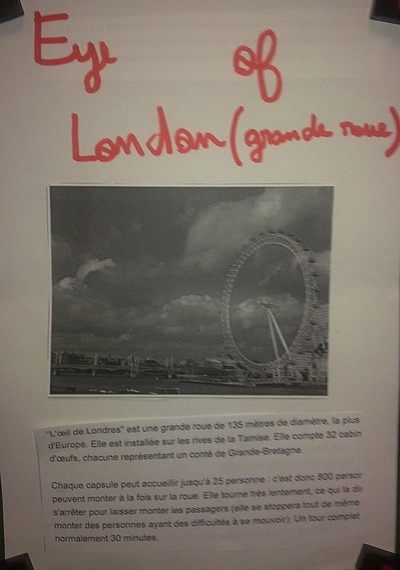 Eye of
London (grande roue)
"L'œil de Londres" est une grande roue de 135 mètres de diamètre, la plus
d'Europe. Elle est installée sur les rives de la Tamise. Elle compte 32 cabin
d'œufs, chacune représentant un conté de Grande-Bretagne.
Chaque capsule peut accueillir jusqu'à 25 personne : c'est donc 800 person
peuvent monter à la fois sur la roue. Elle tourne très lentement, ce qui la di
s'arrêter pour laisser monter les passagers (elle se stoppera tout de même
monter des personnes ayant des difficultés à se mouvoir). Un tour complet
normalement 30 minutes.